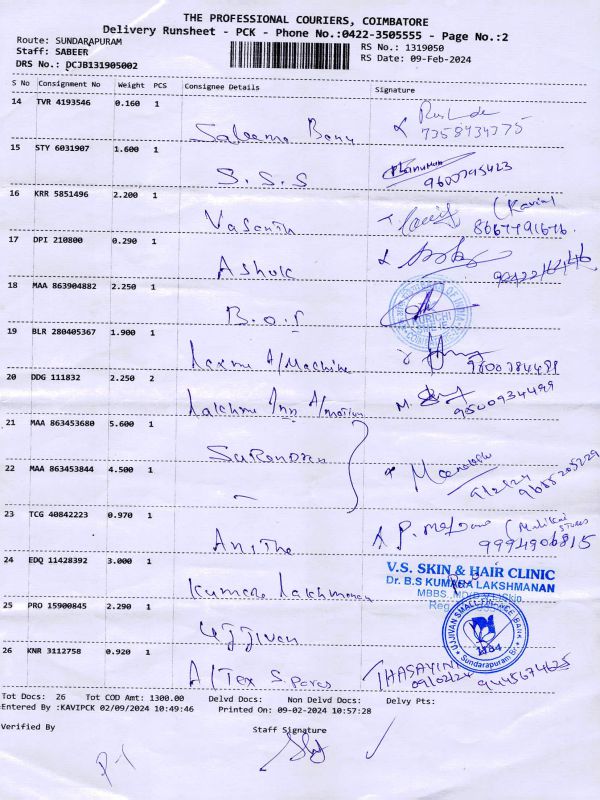 THE PROFESSIONAL COURIERS, COIMBATORE
Delivery Runsheet - PCK - Phone No.:0422-3505555 - Page No.:2
Route: SUNDARAPURAM
RS No.: 1319050
Staff: SABEER
RS Date: 09-Feb-2024
DRS No.: DCJB131905002
S No Consignment No Weight PCS Consignee Details Signature
14 TVR 4193546 0.160 1
Saleema Banu 7358434375
15 STY 6031907 1.600 1
S.S.S 9600795423
16 KRR 5851496 2.200 1
Vasanth (Kavin) 8667791676.
17 DPI 210800 0.290 1
Ashok
18 MAA 863904882 2.250 1
B.O.I
19 BLR 280405367 1.900 1
Laxmi A/Machine 9600784499
20 DDG 111832 2.250 2
Lakshmi Inn A/motion M. 9500934499
21 MAA 863453680 5.600 1
Surendran
22 MAA 863453844 4.500 1
9/2/24 9655205229
23 TCG 40842223 0.970 1
Anitha 9994906815
24 EDQ 11428392 3.000 1
Kumara Lakshmanan
V.S. SKIN & HAIR CLINIC
Dr. B.S KUMARA LAKSHMANAN
25 PRO 15900845 2.290 1
Ujjivan
UJJIVAN SMALL FINANCE BANK
1184
Sundarapuram Br
26 KNR 3112758 0.920 1
A/Tex Spares THASAYINI 09/02/24 9445674625
Tot Docs: 26 Tot COD Amt: 1300.00 Delvd Docs: Non Delvd Docs: Delvy Pts:
Entered By :KAVIPCK 02/09/2024 10:49:46 Printed On: 09-02-2024 10:57:28
Verified By Staff Signature